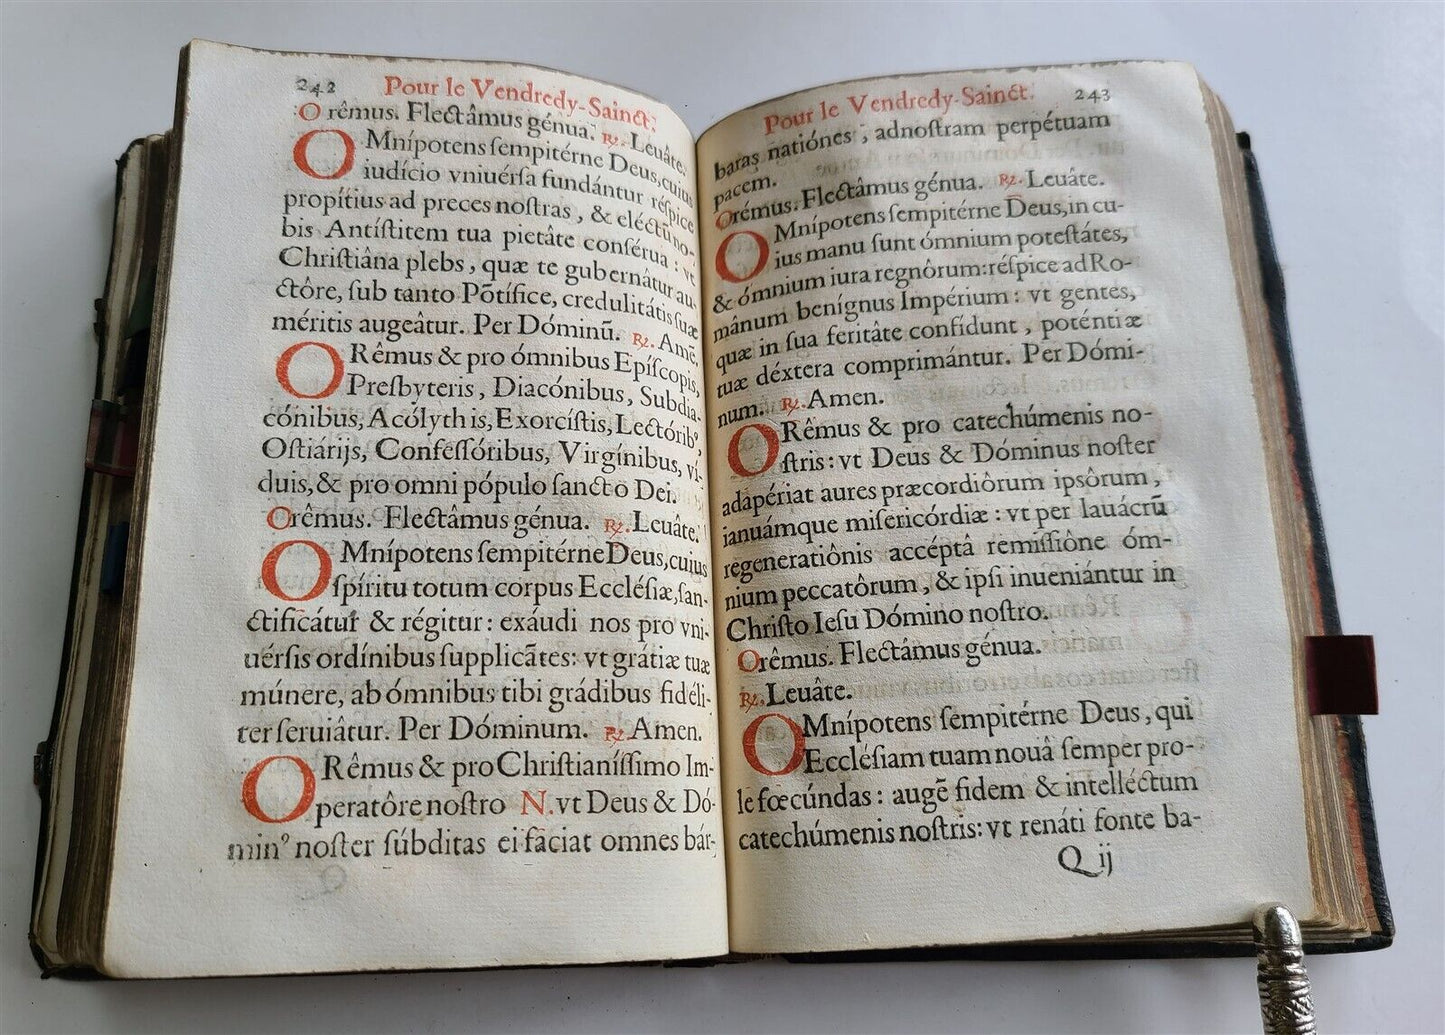 242 Pour le Vendredy-Sainct.
Orêmus. Flectâmus génua. ℟. Leuâte.
OMnípotens ſempitérne Deus, cuius
iudício vniuérſa fundántur réſpice
propítius ad preces noſtras, & eléctũ no-
bis Antíſtitem tua pietâte conſérua : vt
Chriſtiâna plebs, quæ te gubernâtur au-
ctôre, ſub tanto Põtífice, credulitátis ſuæ
méritis augeâtur. Per Dóminũ. ℟. Amẽ.
ORêmus & pro ómnibus Epíſcopis,
Presbyteris, Diacónibus, Subdia-
cónibus, Acólythis, Exorcíſtis, Lectóribꝰ,
Oſtiárijs, Confeſſóribus, Virgínibus, ví-
duis, & pro omni pópulo ſancto Dei.
Orêmus. Flectâmus génua. ℟. Leuâte.
OMnípotens ſempitérne Deus, cuius
ſpíritu totum corpus Eccléſiæ, ſan-
ctificátur & régitur : exáudi nos pro vni-
uérſis ordínibus ſupplicãtes: vt grátiæ tuæ
múnere, ab ómnibus tibi grádibus fidéli-
ter ſeruiâtur. Per Dóminum. ℟. Amen.
ORêmus & pro Chriſtianíſſimo Im-
peratôre noſtro N. vt Deus & Dó-
minꝰ noſter ſúbditas ei fãciat omnes bár-
Pour le Vendredy-Sainct. 243
baras natiónes, adnoſtram perpétuam
pacem.
Orémus. Flectâmus génua. ℟. Leuâte.
OMnípotens ſempitérne Deus, in cu-
ius manu ſunt ómnium poteſtátes,
& ómnium iura regnôrum: réſpice ad Ro-
mânum benígnus Impérium : vt gentes,
quæ in ſua feritâte confídunt, poténtiæ
tuæ déxtera comprimántur. Per Dómi-
num. ℟. Amen.
ORêmus & pro catechúmenis no-
ſtris : vt Deus & Dóminus noſter
adapériat aures præcordiôrum ipsôrum,
ianuámque miſericórdiæ : vt per lauácrũ
regeneratiônis accéptâ remiſſiône óm-
nium peccatôrum, & ipſi inueniántur in
Chriſto Ieſu Dómino noſtro.
Orêmus. Flectámus génua.
℟. Leuâte.
OMnípotens ſempitérne Deus, qui
Eccléſiam tuam nouâ ſemper pro-
le fœcúndas : augẽ fidem & intelléctum
catechúmenis noſtris: vt renáti fonte ba-
Q ij